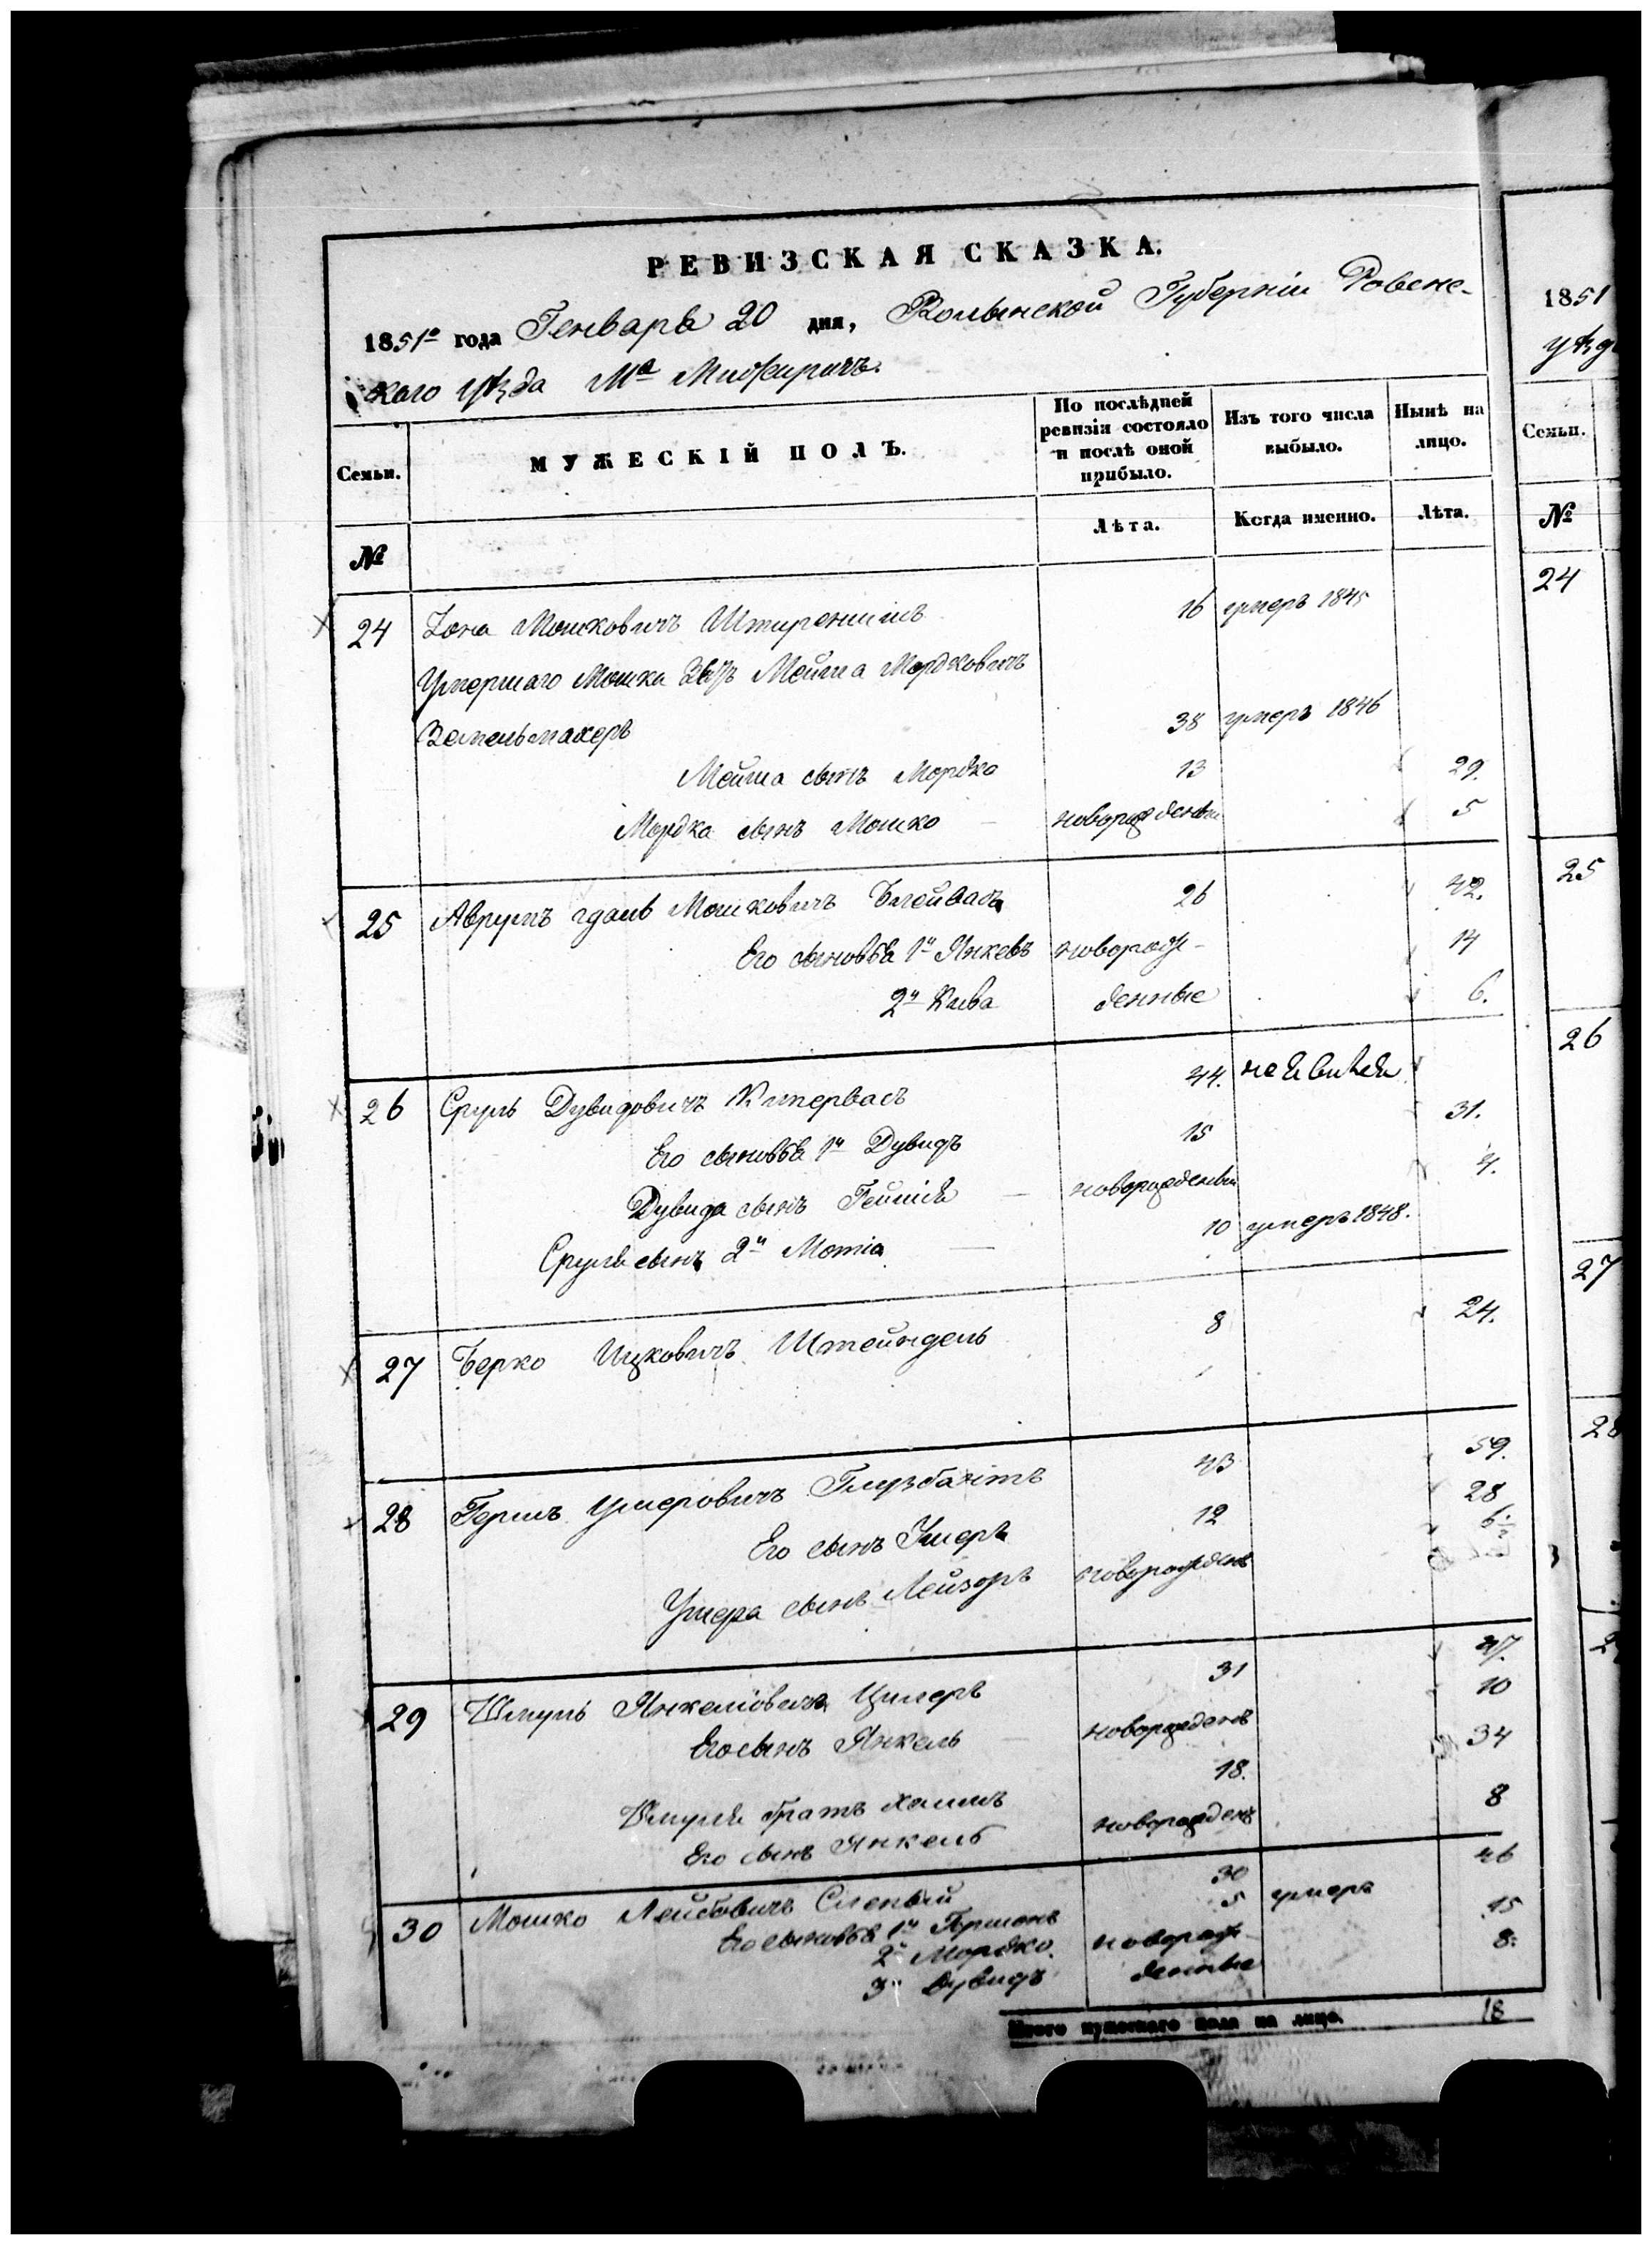 РЕВИЗСКАЯ СКАЗКА.
1851го года Генваря 20 дня, Волынской Губерніи Ровенс-
каго уѣзда Мѣ Межиричъ.
Семьи. МУЖЕСКІЙ ПОЛЪ. По послѣдней ревизіи состояло и послѣ оной прибыло. Изъ того числа выбыло. Нынѣ на лицо.
№ Лѣта. Когда именно. Лѣта.
24 Іона Мошковичъ 16 умеръ 1845
Умершаго Мошка Зять Мейша Мордковичъ
Земельмахеръ 38 умеръ 1846
Мейша сынъ Мордко 13 29.
Мордка сынъ Мошко новорожденный 5
25 Аврумъ Мошковичъ 26 42.
Его сыновья 1й Янкевъ новорож- 14
2й Кива денные 6.
26 Сруль Дувидовичъ 44.
Его сыновья 1й Дувидъ 15 31.
Дувида сынъ новорожденный 4.
Сруля сынъ 2й Мотіа 10 умеръ 1848.
27 Берко Ицковичъ Штейндель 8 24.
28 Гершъ Ушеровичъ 43 59.
Его сынъ Ушеръ 12 28
Ушера сынъ Лейзоръ новорожденъ 6½
29 Шмуль Янкелiовичъ Циперъ 31 47.
Его сынъ Янкель новорожденъ 10
Шмуля братъ Хаимъ 18. 34
Его сынъ Янкель новорожденъ 8
30 Мошко Лейбовичъ Слепый 30 46
Его сыновья 1й Гершонъ 5 умеръ
2й Мордко новорож- 15
3й Дувидъ денные 8.
Итого мужескаго пола на лицо. 18
1851
24
25
26
27
28